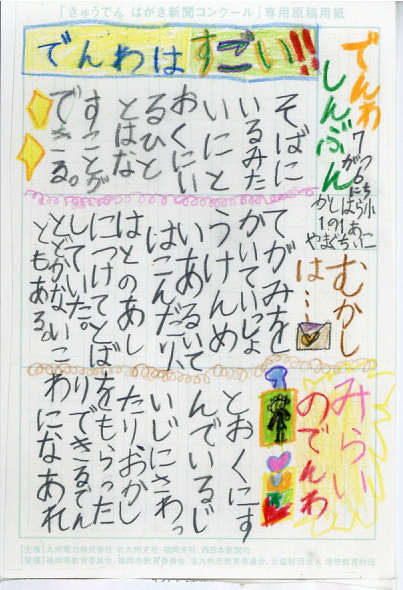 「きゅうでん はがき新聞コンクール」専用原稿用紙
でんわは すごい!!
でんわ
しんぶん
7がつ6にち
かしはら小
1の1
やまぐち
そばに
いるみた
いにと
おくにい
るひと
とはな
すことが
できる。
むかし
は…
てがみを
かいていっしょ
うけんめ
いあるいて
はこんだり
はとのあし
につけてとば
していた。
とどかないこ
ともある。
みらい
のでんわ
とおくにす
んでいるじ
いじにさわっ
たりおかし
をもらった
りできるでん
わになあれ
【主催】九州電力株式会社 北九州支社・福岡支社、西日本新聞社
【後援】福岡県教育委員会、福岡市教育委員会、北九州市教育委員会、公益財団法人 理想教育財団